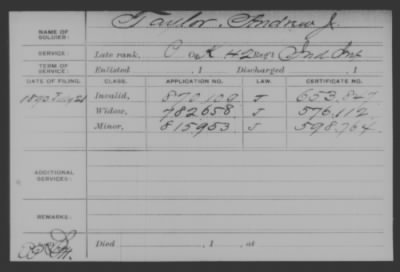 Taylor, Andrew J.
NAME OF SOLDIER:
SERVICE: Late rank, Co. K 42 Reg't Ind Inf
TERM OF SERVICE: Enlisted , 1 Discharged , 1
DATE OF FILING. CLASS. APPLICATION NO. LAW. CERTIFICATE NO.
1890 Invalid, 870,109 J 653,847
Widow, 782658 J 576,112
Minor, 815,953 J 598,764
ADDITIONAL SERVICES:
REMARKS:
Died , 1 , at